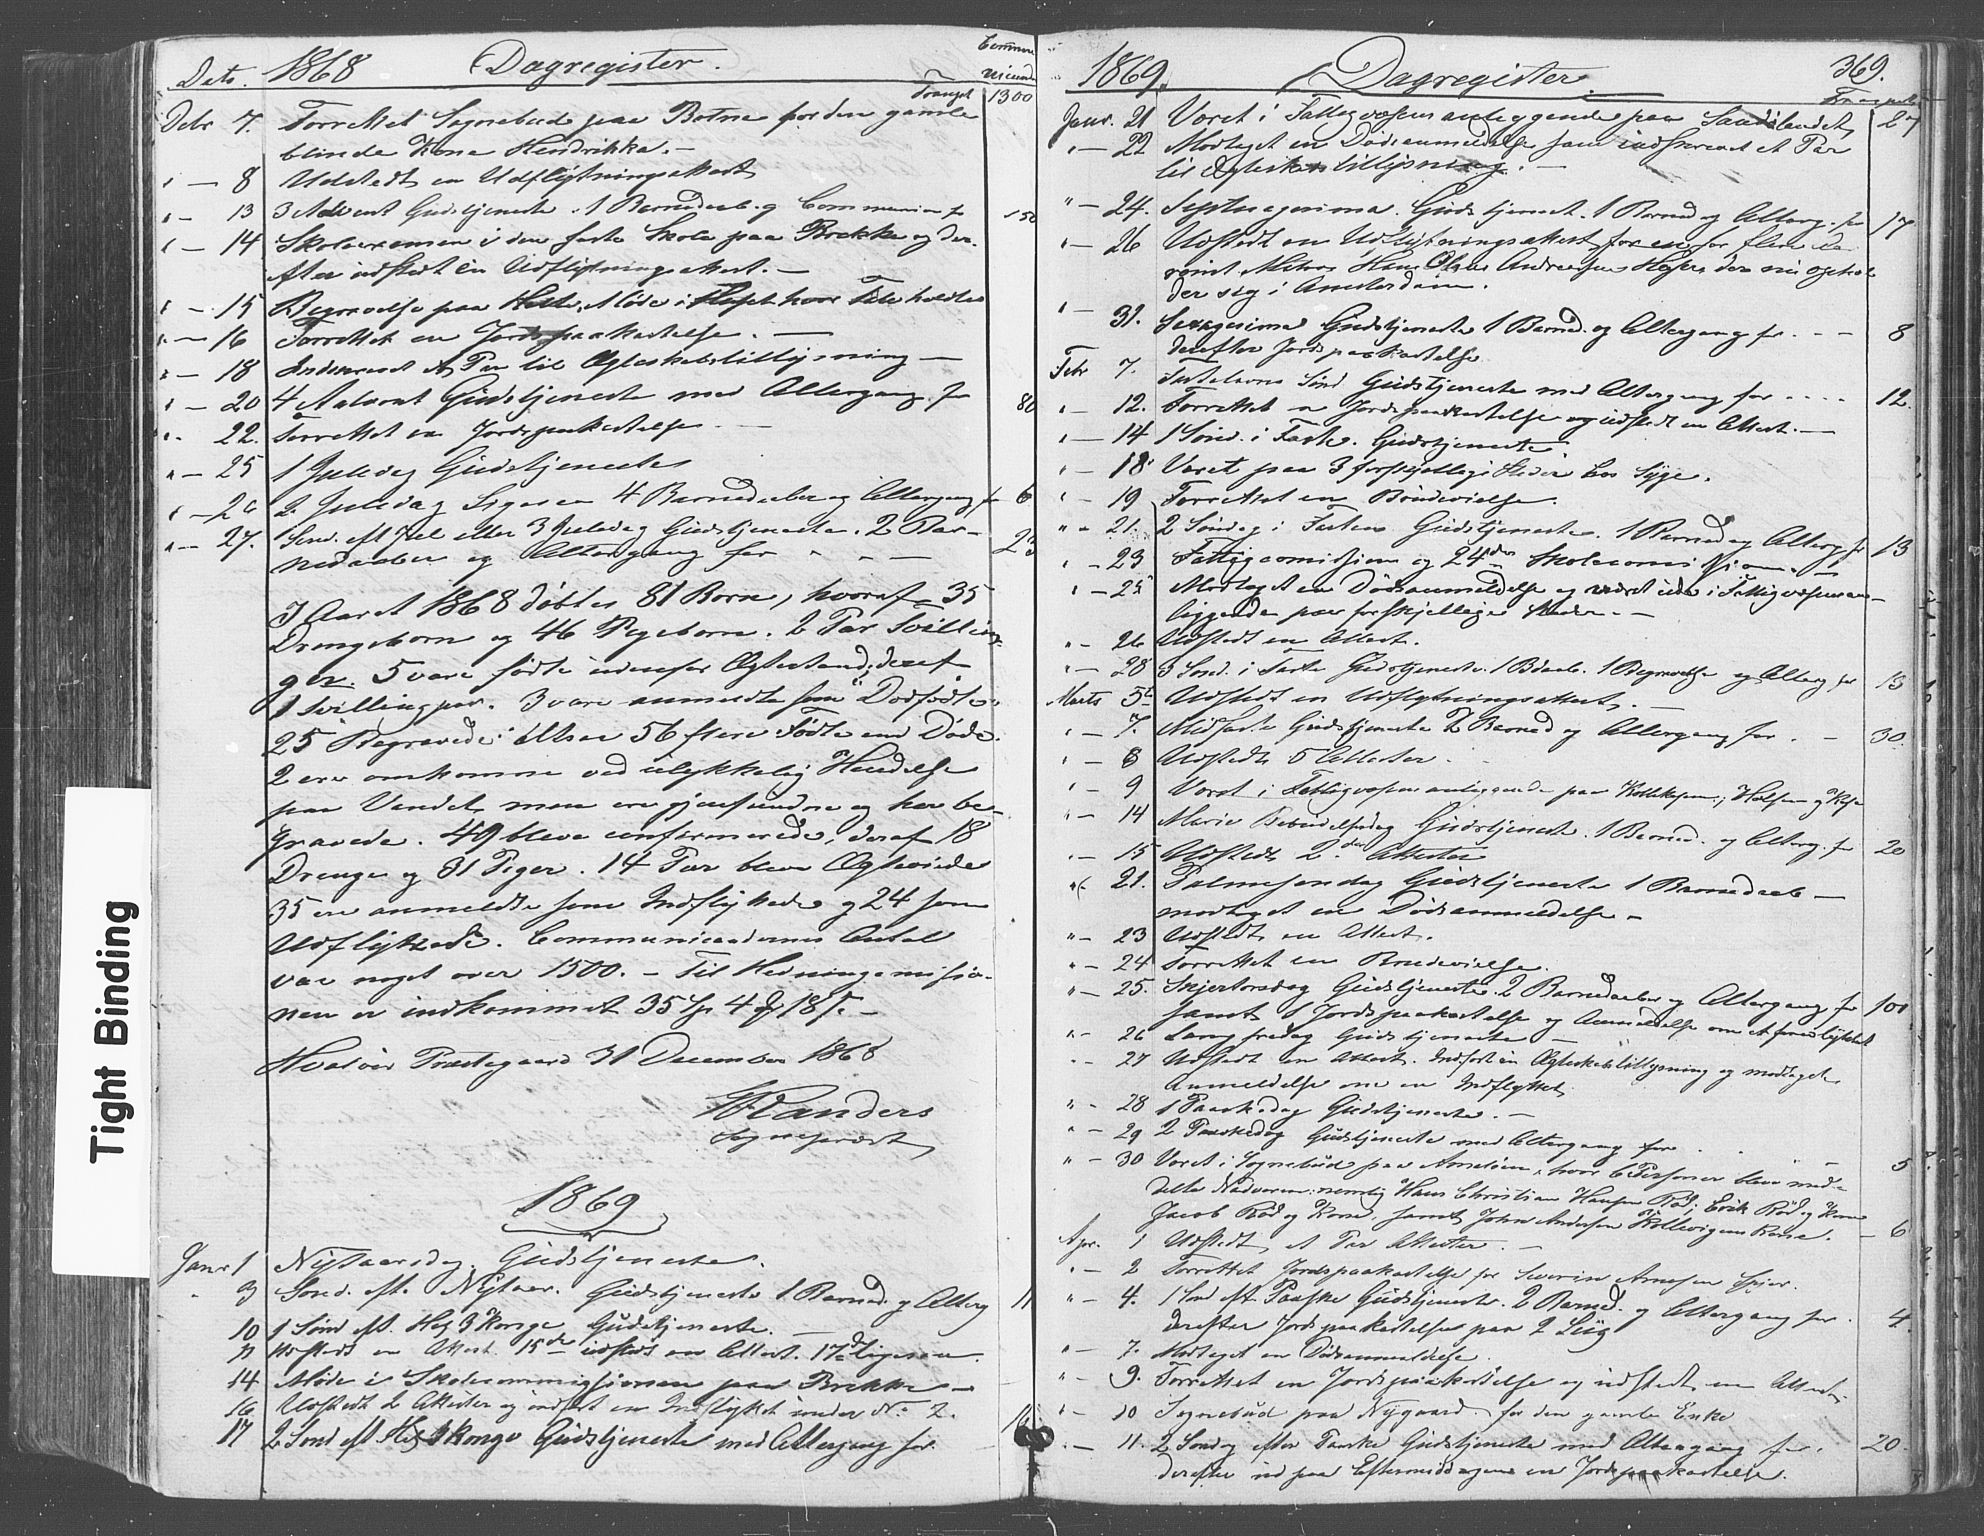 Dato. 1868 Dagregister.
Commu
nicanter
Transpt 1300
Decbr 7. Forrettet Sognebud paa Botne for den gamle
blinde Kone Hendrikka. –
" – 8 Udstedt en Udflytningsattest
" – 13 3 Advent Gudstjeneste. 1 Barnedaab og Communion for 150
" – 14 Skoleexamen i den faste Skole paa Brekke og der-
efter udstedt en Udflytningsattest. –
" – 15 Begravelse paa Møde i hvor holdtes
" – 16 Forrettet en Jordspaakastelse. –
" – 18 Indskrevet et Par til Ægteskabstillysning –
" – 20 4 Advent Gudstjeneste med Altergang for 80
" – 22. Forrettet en Jordspaakastelse –
" – 25 1 Juledag Gudstjeneste
" – 26 2 Juledag Ligesaa 4 Barnedaaber og Altergang for 6
" – 27. Sønd. eft Jul eller 3 Juledag Gudstjeneste. 2 Bar-
nedaaber og Altergang for " – – 23
I Aaret 1868 døbtes 81 Børn, hvoraf 35
Drengebørn og 46 Pigebørn. 2 Par Tvillin-
ger. 5 vare fødte udenfor Ægtestand, deraf
1 Tvillingpar. 3 vare anmeldte som Dødfødte.
25 Begravede altsaa 56 flere Fødte end Døde.
2 ere omkomne ved ulykkelig Hendelse
paa Vandet men ere gjenfundne og her be-
gravede. 49 bleve confirmerede, deraf 18
Drenge og 31 Piger. 14 Par bleve Ægteviede
35 ere anmeldte som Indflyttede og 24 som
Udflyttede. Communicanternes Antal
var noget over 1500. – Til Hedningemissio-
nen er indkommet 35 Sp 4 18 s. –
Hvalöer Præstegaard 31 December 1868
Landers
Sognepræst
1869
Janr 1 Nytaarsdag. Gudstjeneste.
" 3 Sønd. eft. Nytaar. Gudstjeneste 1 Barned. og Alterg 11
10 1 Sønd eft. Hel 3 Konge Gudstjeneste. –
11 Udstedt en Attest. 15de udstedt en Attest. 17de ligesaa.
14 Møde i Skolecommissionen paa Brekke –
16 Udstedt 2 Attester og indført en Indflyttet under No 2.
17 2 Sønd eft Hel 3 Konge Gudstjeneste med Altergang for 16
1869. Dagregister. 369.
Transpt
Janr. 21 Været i Fattigvæsens anliggende paa Sandølandet 27
" – 22 Modtaget en Dødsanmeldelse samt indskrevet et Par
til Ægteskabstillysning. –
" – 24. Septuagesima. Gudstjenest. 1 Barned og Alterg. for 17
" – 26 Udstedt en Udflytningsattest for en for flere
reist Matros Hans Olaus Andreasen der nu ophol-
der sig i Amsterdam.
" – 31. Sexagesima Gudstjeneste 1 Barned. og Altergang for . – – 8
derefter Jordspaakastelse
Febr 7. Fastelavns Sønd Gudstjeneste med Altergang for . . . . 12.
" – 12. Forrettet en Jordspaakastelse og udstedt en Attest. –
" – 14 1 Sønd. i Faste. Gudstjeneste.
" – 18 Været paa 3 forskjellige Steder hos Syge.
" – 19 Forrettet en Brudevielse.
" – 21. 2 Søndag i Fasten Gudstjeneste. 1 Barned og Alterg. for 13
" – 23 Fattigcommission og 24de Skolecommission. –
" – 25 Modtaget en Dødsanmeldelse og været ude i Fattigvæsensan-
liggender paa forskjellige Steder. –
" – 26 Udstedt en Attest.
" – 28 3 Sønd. i Faste Gudstjeneste. 1 Bdaab. 1 Begravelse og Alterg for 13
Marts 5te Udstedt en Udflytningsattest. –
" – 7. Midfaste Gudstjeneste 2 Barned og Altergang for . – 30.
" – 8 Udstedt 5 Attester.
" – 9 Været i Fattigvæsens anliggende paa
" – 14 Marie Bebudelsesdag Gudstjenest. 1 Barned. og Alterg. for 20
" – 15 Udstedt 2 Attester
" – 21. Palmesøndag Gudstjeneste 1 Barnedaab –
modtaget en Dødsanmeldelse –
" – 23 Udstedt en Attest.
" – 24 Forrettet en Brudevielse.
" – 25. Skjertorsdag Gudstjeneste. 2 Barnedaaber og Altergang for 101
samt 1 Jordspaakastelse og Anmeldelse om et
" – 26 Langfredag Gudstjeneste –
" – 27 Udstedt en Attest. Indført en Ægteskabstillysning og modtaget
Anmeldelse om en Indflyttet.
" – 28 1 Paaskedag Gudstjeneste. –
" – 29 2 Paaskedag Gudstjeneste med Altergang for . . – 5
" – 30 Været i Sognebud paa hvor 6 Personer bleve med-
delte Nadveren: nemlig Hans Christian Hansen Rød, Erik Rød og Kone
Jacob Rød og Kone. samt John Andersen Kone. – 6
Apr. 1 Udstedt et Par Attester. –
" – 2 Forrettet Jordspaakastelse for Severin Arnesen Spjær.
" – 4. 1 Sønd eft. Paaske Gudstjeneste. 2 Barned. og Altergang for . 4.
derefter Jordspaakastelse paa 2 Liig
" – 7. Modtaget en Dødsanmeldelse.
" – 9. Forrettet en Jordspaakastelse og udstedt en Attest.
" – 10 Sognebud paa Nygaard for den gamle Enke
" – 11. 2 Søndag efter Paaske Gudstjeneste med Altergang for. 20.
derefter ud paa Eftermiddagen en Jordspaakastelse.
Tight Binding